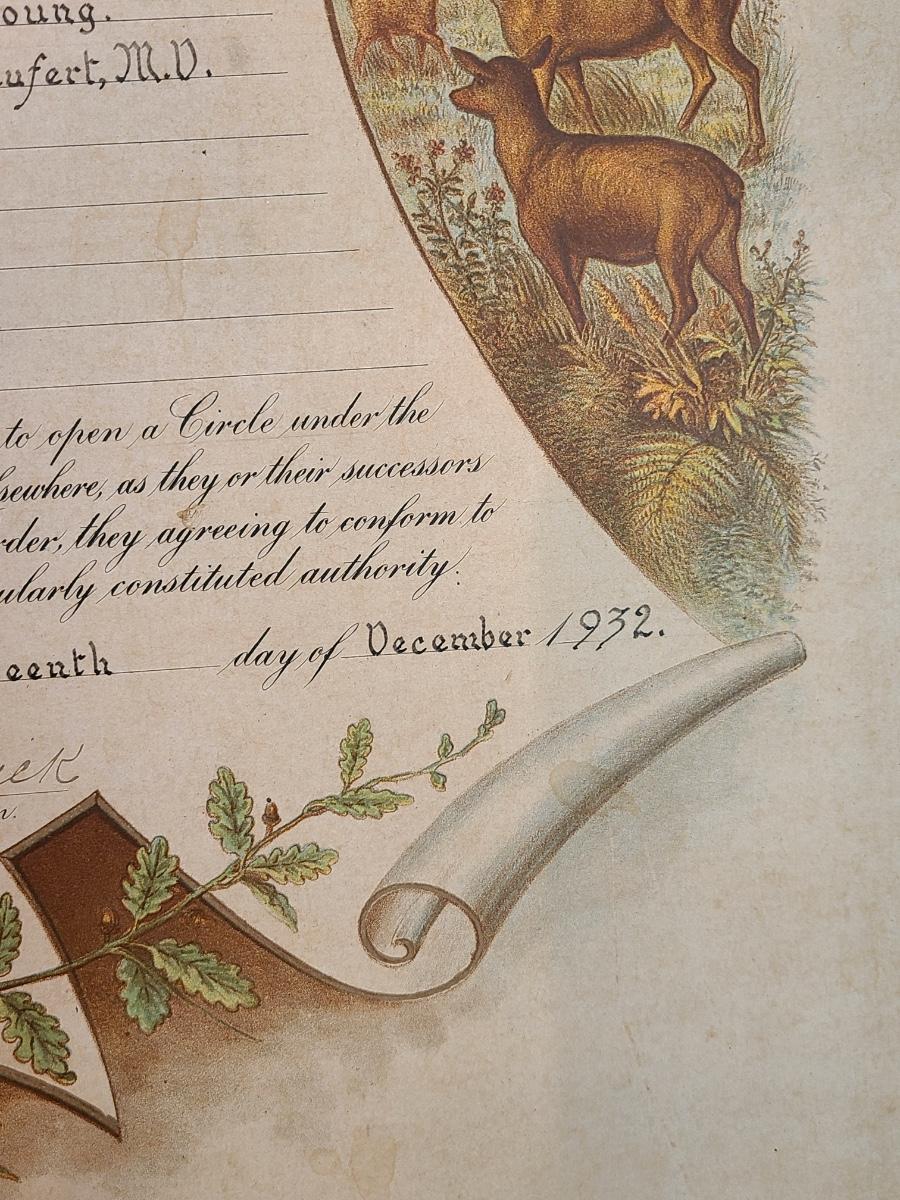 oung.
ufert, M.D.
to open a Circle under the
sewhere, as they or their successors
rder, they agreeing to conform to
ularly constituted authority.
eenth day of December 1932.
ck
n.